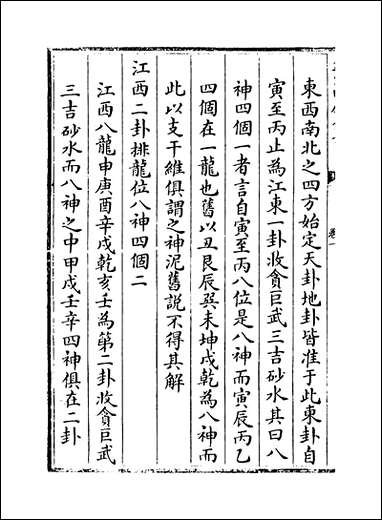 東西南北之四方始定天卦地卦皆准于此東卦自
寅至丙止為江東一卦收貪巨武三吉砂水其曰八
神四個一者言自寅至丙八位是八神而寅辰丙乙
四個在一龍也舊以丑艮辰巽未坤戌乾為八神而
此以支干維俱謂之神泥舊説不得其解
江西二卦排龍位八神四個二
江西八龍申庚酉辛戌乾亥壬為第二卦收貪巨武
三吉砂水而八神之中甲戌壬辛四神俱在二卦